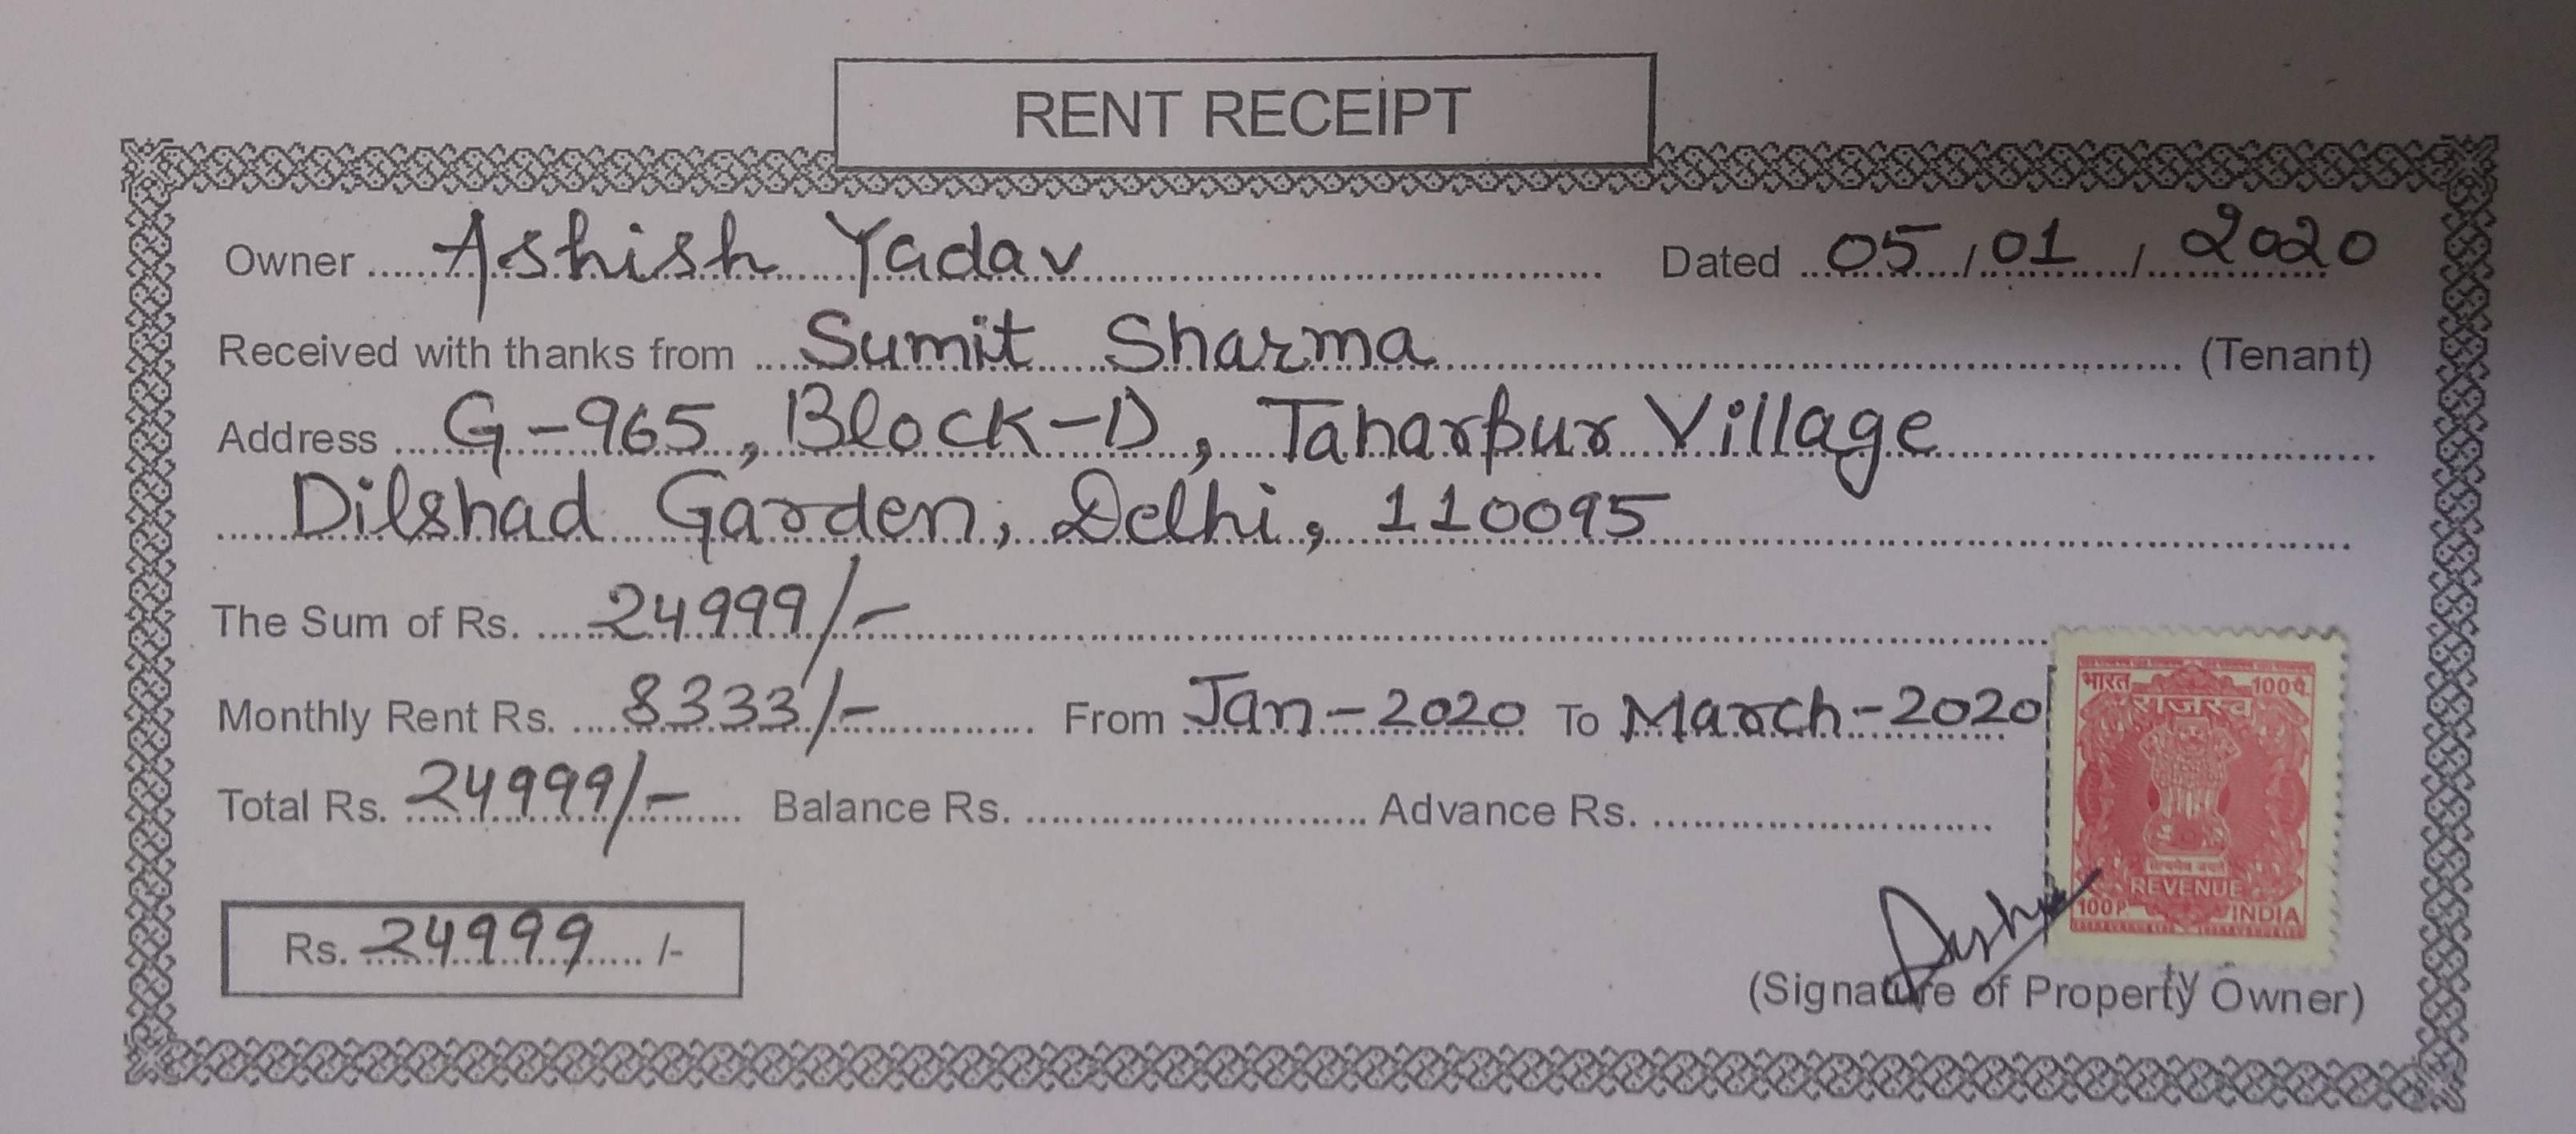 RENT RECEIPT
Owner Ashish Yadav Dated 05/01/2020
Received with thanks from Sumit Sharma (Tenant)
Address G-965, Block-D, Taharpur Village
Dilshad Garden, Delhi, 110095
The Sum of Rs. 24999/-
Monthly Rent Rs. 8333/- From Jan-2020 To March-2020
Total Rs. 24999/- Balance Rs. Advance Rs.
भारत 100प.
राजस्व
सत्यमेव जयते
REVENUE
100P. INDIA
Rs. 24999 /-
(Signature of Property Owner)